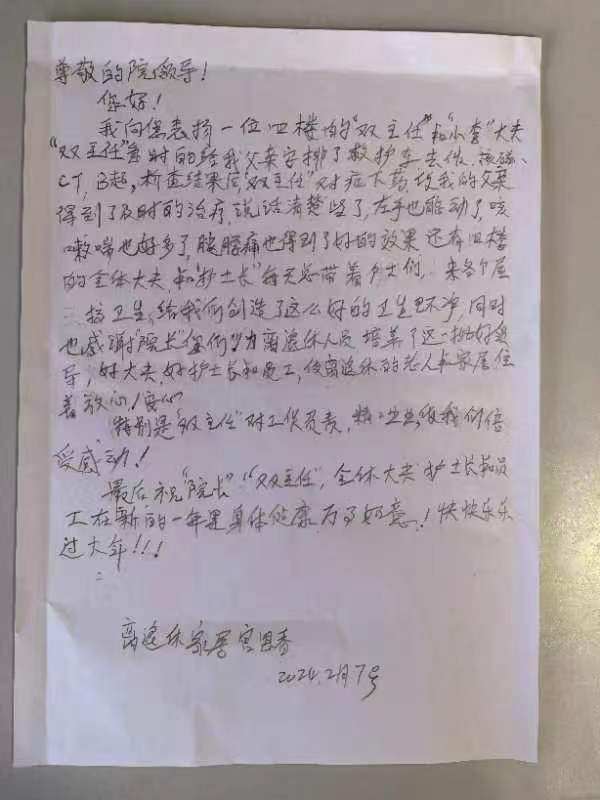 尊敬的院领导！
您好！
我向您表扬一位四楼的"双主任"和"小李"大夫
"双主任"急时的给我父亲安排了救护车去做核磁、
CT，B超，检查结果后"双主任"对症下药，我的父亲
得到了及时的治疗，说话清楚些了，左手也能动了，咳
嗽喘也好多了，腿膀痛也得到了好的效果 还有四楼
的全体大夫 和"护士长"每天总带着护士们，来各个屋
检卫生，给我们创造了这么好的卫生环净，同时
也感谢"院长"您们为离退休人员 培养了这一批好领
导，好大夫，好护士长和员工，使离退休的老人和家属住
着放心！安心
特别是"双主任"对工作负责，我们倍
受感动！
最后祝"院长""双主任"，全体大夫 护士长和员
工在新的一年里身体健康，万事如意！快快乐乐
过大年！！！
离退休家属 宫
2024.2月7号